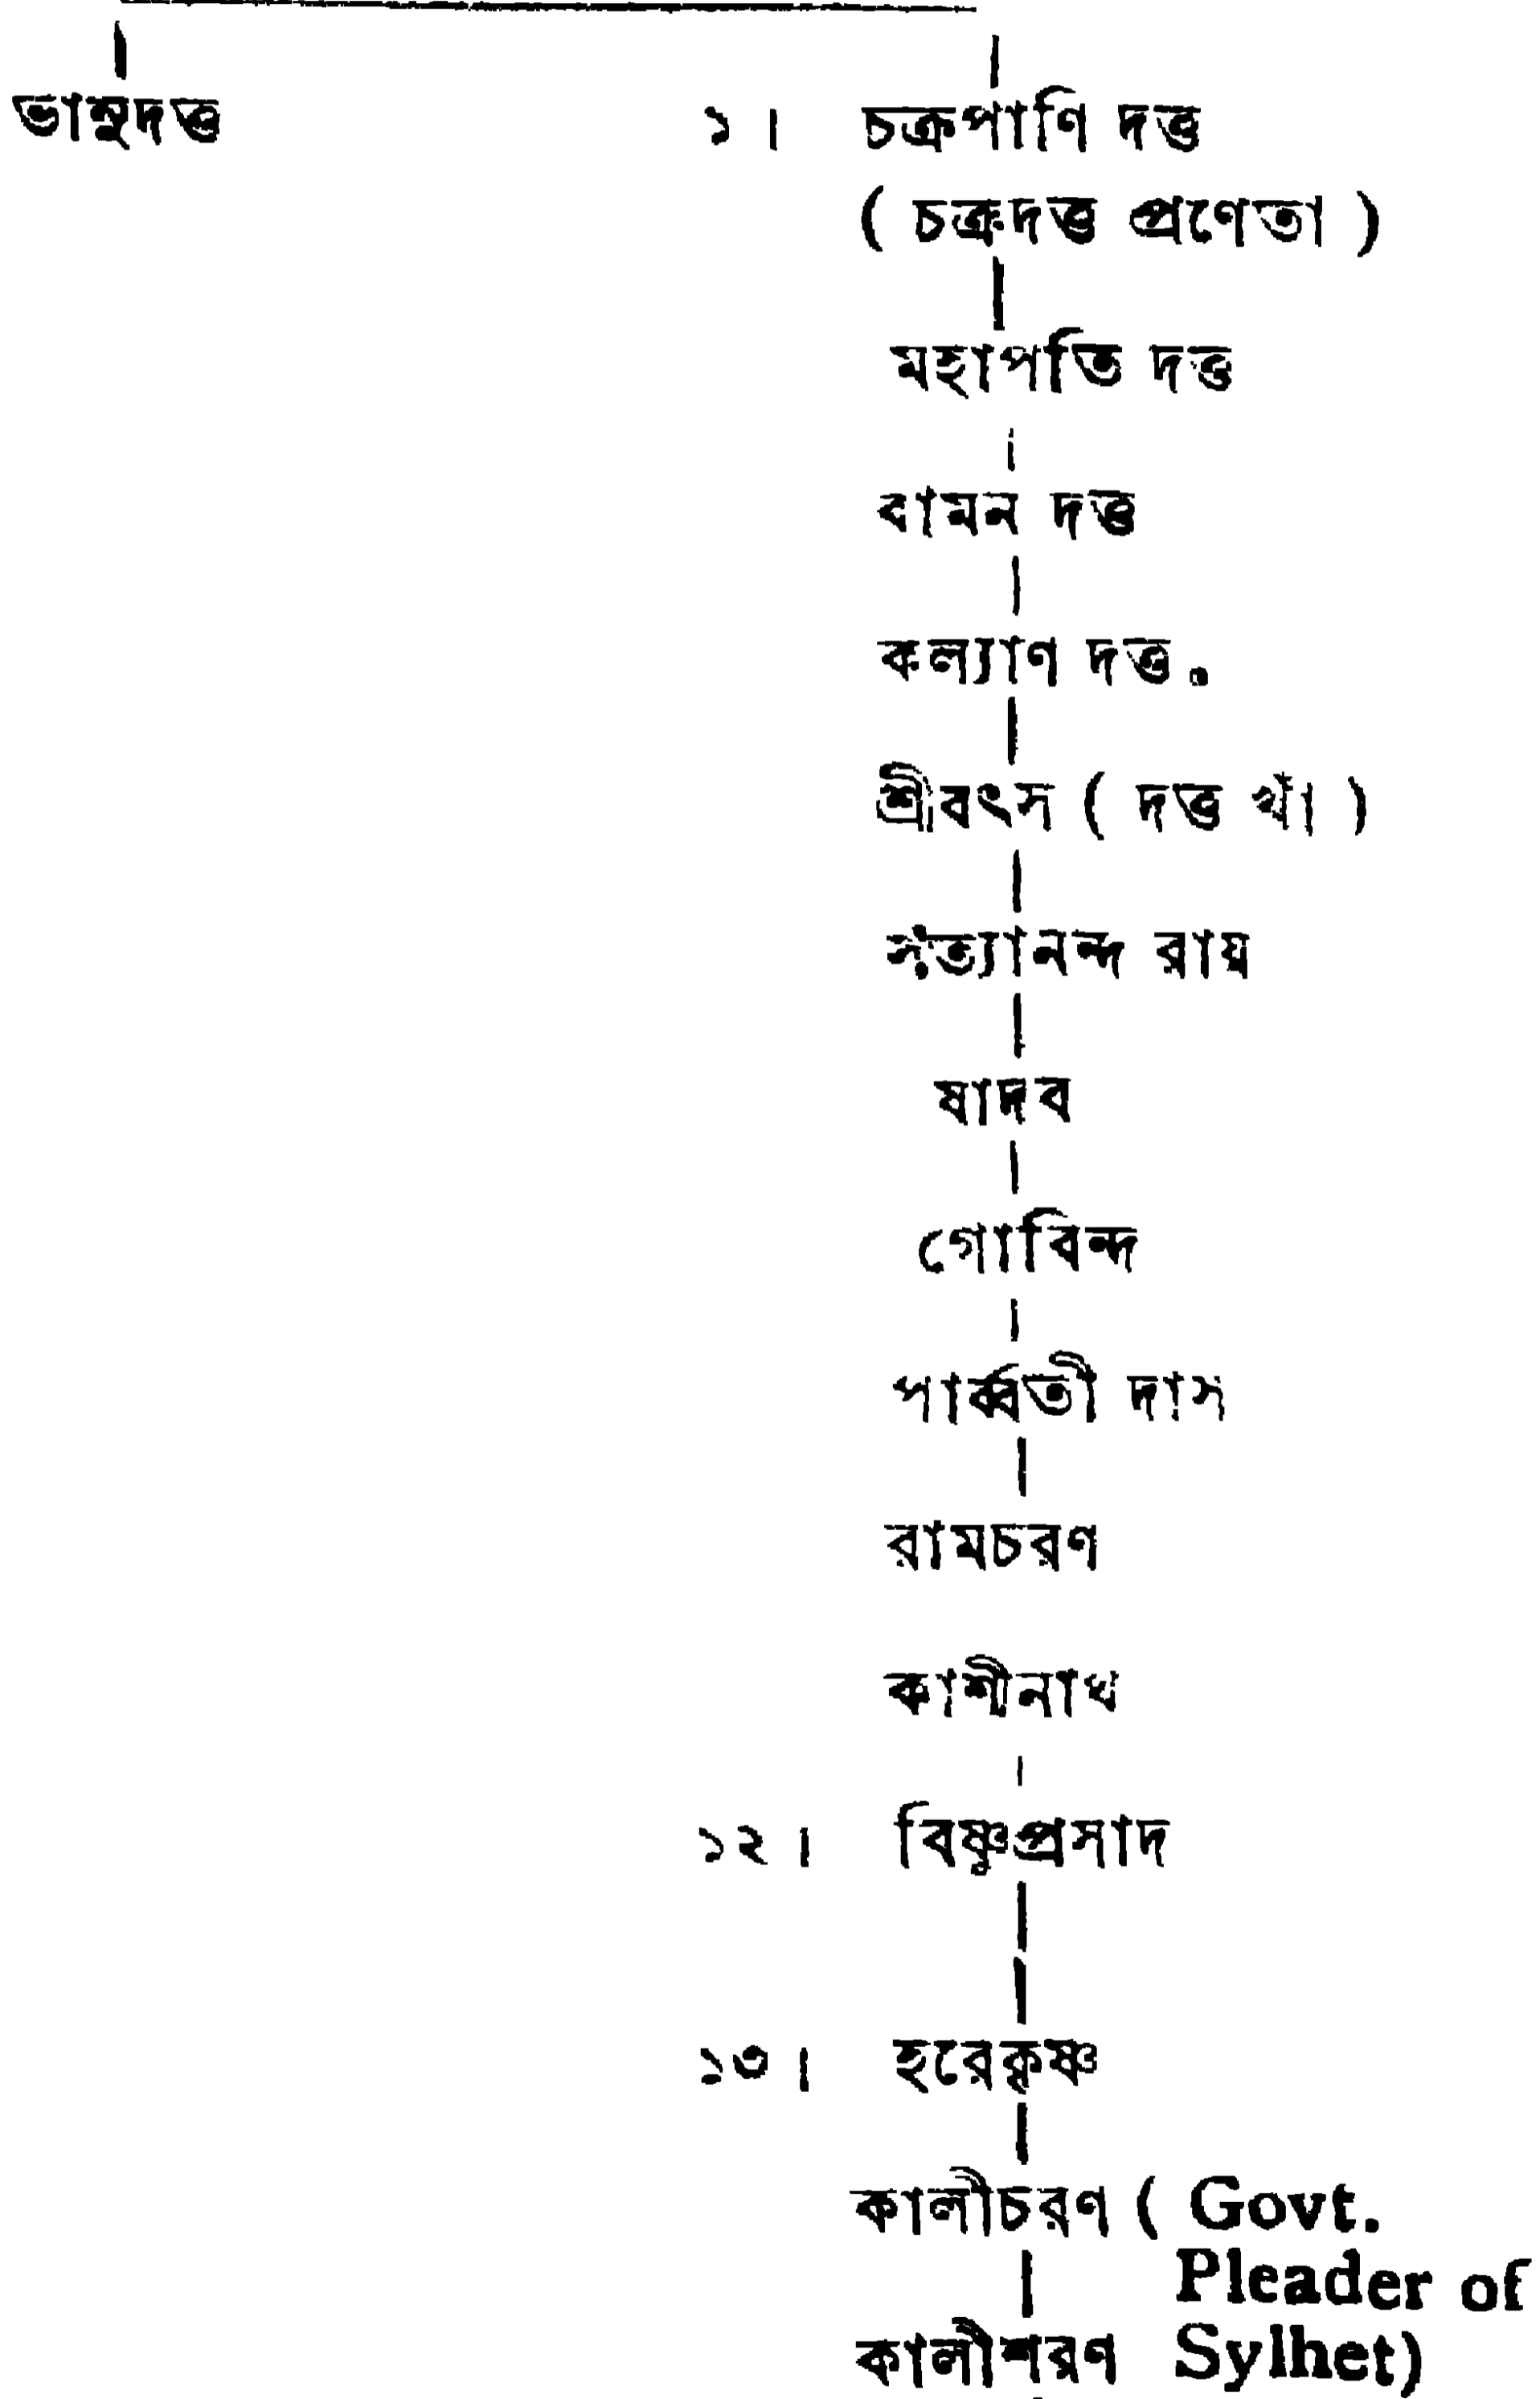 ভানুদত্ত ১। চক্রপাণি দত্ত
( চক্রদত্ত প্রণেতা )
মহাপতি দত্ত
বামন দত্ত
কল্যাণ দত্ত.
শ্রীবৎস ( দত্ত খাঁ )
সত্যানন্দ রায়
যাদব
গোবিন্দ
পার্ব্বতী দাস
রামচরণ
কাশীনাথ
১২। বিষ্ণুপ্রসাদ
১৩। হরেকৃষ্ণ
কালীচরণ ( Govt.
Pleader of
কালীশরণ Sylhet)